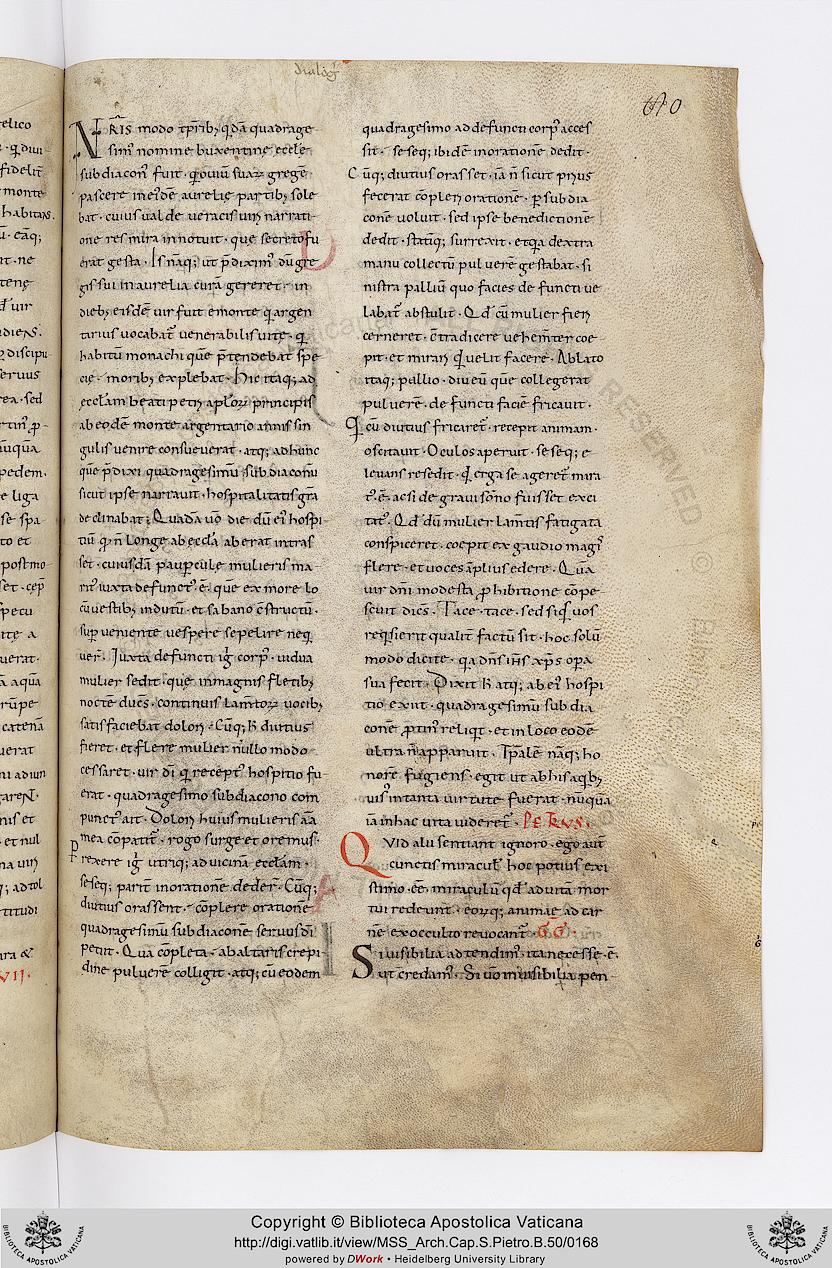 dialog
NR̄IS modo tp̄rib; q̇dā quadrage
simꝰ nomine buxentinę ecclę
subdiaconꝰ fuit · qui ouiū suaꝝ gregē
pascere in eiꝰdē aurelię partib; sole
bat · cuius ualde ueracis uiri narrati
one res mira innotuit · quę secreto fu
erat gesta · Is naq; ut p̄diximꝰ dū gre
gis sui in aurelia curā gereret · in
dieb; eisdē uir fuit e monte q̇ argen
tarius uocabatᷣ uenerabilis uitę · q̇
habitū monachi quē p̄tendebat spe
cię · morib; explebat · Hic itaq; ad
ęccłam beati petri aploꝝ principis
ab eodē monte argentario annis sin
gulis uenire consueuerat · atq; ad hunc
quē p̄dixi quadragesimū subdiaconū
sicut ipse narrauit · hospitalitatis gr̄a
declinabat; Quadā uo die dū eiꝰ hospi
tiū q̇ n̄ longe ab eccła aberat intras
set · cuiusdā paupculę mulieris ma
ritꝰ iuxta defunctꝰ ē · quē ex more lo
tū uestib; indutū · et sabano c̄structū ·
sup ueniente uespere sepelire neq;
uer̄ · Iuxta defuncti iḡ corpꝰ · uidua
mulier sedit · quę in magnis fletib;
noctē ducēs · continuis lam̄toꝝ uocib;
satisfaciebat dolori · Cūq; h̄ diutius
fieret · et flere mulier nullo modo
cessaret · uir di q̇ receptꝰ hospitio fu
erat · quadragesimo subdiacono com
punctꝰ ait · Dolori huius mulieris aīa
mea cōpatitᷣ · rogo surge et oremus ·
Prexere iḡ utriq; ad uicinā eccłam ·
seseq; parit̄ in orationē dederᷣ · Cūq;
diutius orassent · cōplere orationē
quadragesimū subdiaconē seruus di
petiit · Qua cōpleta · ab altaris crepi
dine puluerē colligit · atq; cū eodem
quadragesimo ad defuncti corpꝰ acces
sit · seseq; ibidē in orationē dedit ·
Cūq; diutius orasset · iā n̄ sicut priꝰ
fecerat cōpleri orationē · p subdia
conē uoluit · sed ipse benedictionē
dedit · statiq; surrexit · et qa dextra
manu collectū puluerē gestabat · si
nistra palliū quo facies defuncti ue
labatᷣ abstulit · Qd cū mulier fieri
cerneret · c̄tradicere uehem̄ter coe
pit · et mirari q̇ uelit facere · Ablato
itaq; pallio · diu eū quē collegerat
puluerē · defuncti faciē fricauit ·
Q̇ cū diutius fricaretᷣ · recepit animam ·
oscitauit · Oculos aperuit · seseq; e
leuans resedit · q̇ erga se ageretᷣ mira
tꝰ ē · ac si de graui sōno fuisset exci
tatꝰ · Qd dū mulier lam̄tis fatigata
conspiceret · coepit ex gaudio magiꝰ
flere · et uoces āplius edere · Quā
uir dn̄i modesta phibitione cōpe
scuit dicēs · Tace · tace · sed siq̇ uos
reqisierit qualit̄ factū sit · hoc solū
modo dicite · qa dn̄s ih̄s xp̄s opa
sua fecit · Dixit h̄ atq; ab eiꝰ hospi
tio exiit · quadragesimū subdia
conē ptinꝰ reliqt · et in loco eodē
ultra n̄ apparuit · Tp̄alē naq; ho
norē fugiens · egit ut ab his a qib;
uisꝰ in tanta uirtute fuerat · nūquā
iā in hac uita uideretᷣ · PETRVS ·
Quid alii sentiant ignoro · ego aut̄
cunctis miraculis hoc potius exi
stimo eē miraculū qd ad uitā mor
tui redeunt · eorūq; animae ad car
nē ex occulto reuocantᷣ · GḠ ·
Si uisibilia adtendimꝰ · ita necesse ē ·
ut credamꝰ · Si uō inuisibilia pen
Copyright © Biblioteca Apostolica Vaticana
http://digi.vatlib.it/view/MSS_Arch.Cap.S.Pietro.B.50/0168
powered by DWork • Heidelberg University Library